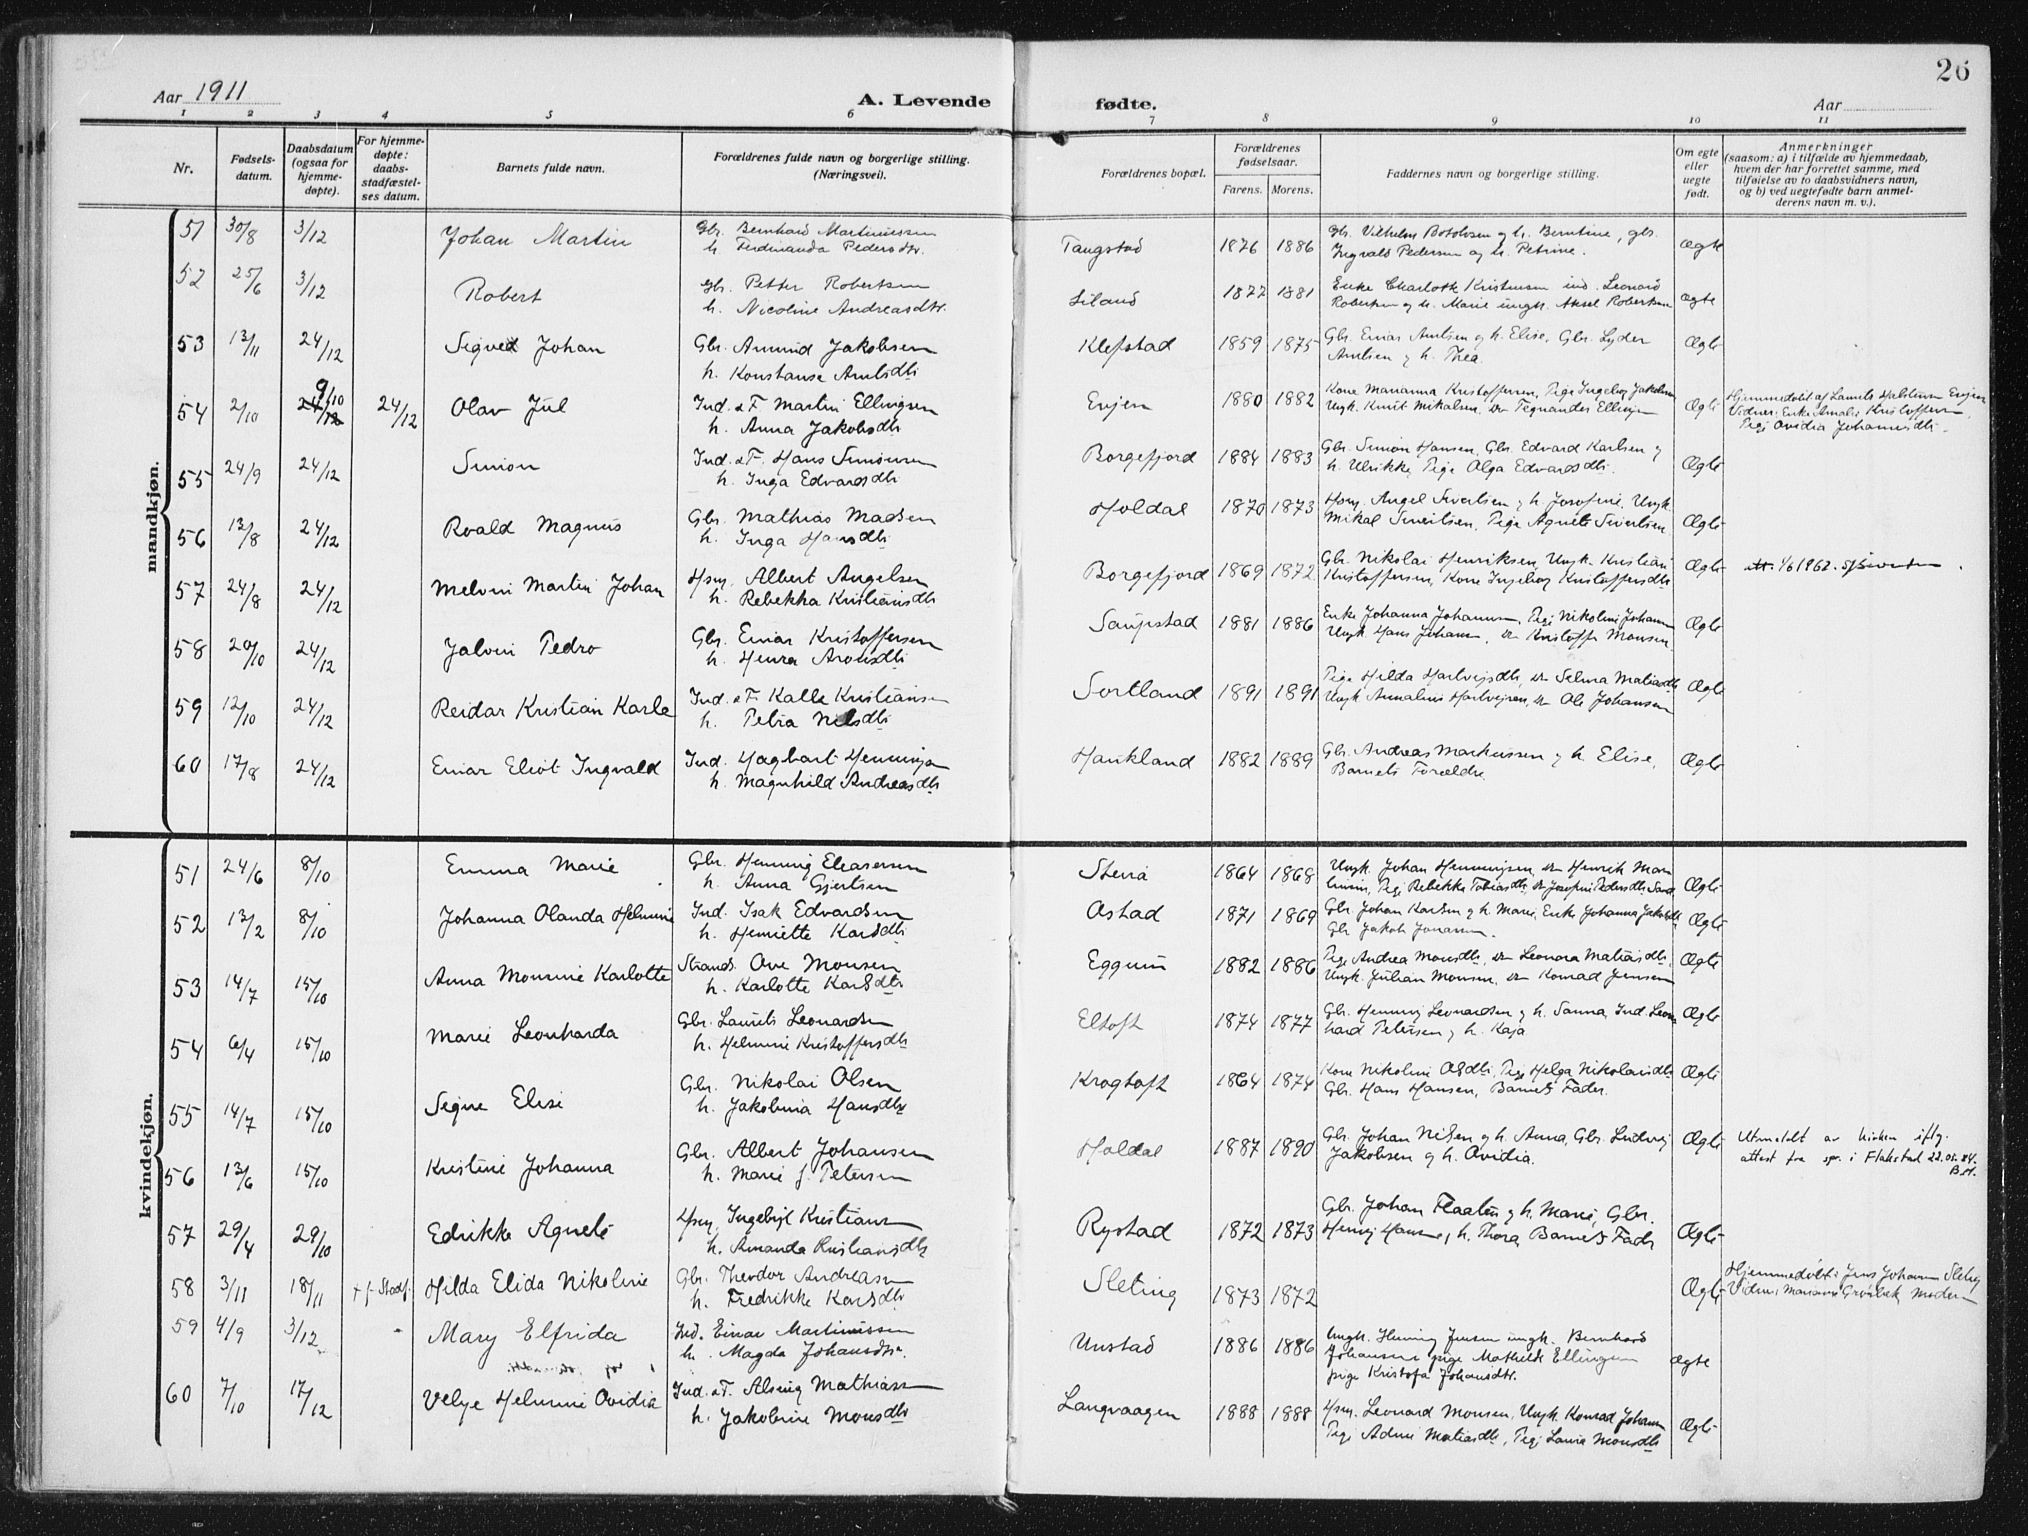 26
Aar 1911
A. Levende
fødte.
Aar
1 2 3 4 5 6 7 8 9 10 11
Nr.
Fødsels-
datum.
Daabsdatum
(ogsaa for
hjemme-
døpte).
For hjemme-
døpte:
daabs-
stadfæstel-
ses datum.
Barnets fulde navn.
Forældrenes fulde navn og borgerlige stilling.
(Næringsvei).
Forældrenes bopæl.
Forældrenes
fødselsaar.
Farens. Morens.
Faddernes navn og borgerlige stilling.
Om egte
eller
uegte
født.
Anmerkninger
(saasom: a) i tilfælde av hjemmedaab,
hvem der har forrettet samme, med
tilføielse av to daabsvidners navn,
og b) ved uegtefødte barn anmel-
derens navn m. v.).
mandkjøn.
51 30/8 3/12 Johan Martin Gbr. Bernhard Martinussen Tangstad 1876 1886 Gbr. Vilhelm Botolvsen og h. Berntine, gbr. ægte
h. Ferdinanda Pedersdtr. Ingvald Pedersen og h. Petrine.
52 25/6 3/12 Robert gbr. Petter Robertsen Liland 1877 1881 Enke Charlotte Kristensen ind. Leonard ægte
h. Nicoline Andreasdtr. Robertsen og h. Marie ungk. Aksel Robertsen
53 13/11 24/12 Sigved Johan Gbr. Amund Jakobsen Klefstad 1859 1875 Gbr. Einar Amtsen og h. Elise, Gbr. Lyder Ægte
h. Konstanse Arntsdtr Arntsen og h. Thea.
54 2/10 9/10 24/12 Olav Jul Ind. & F. Martin Ellingsen Evjen 1880 1882 Kone Marianna Kristoffersen, Pige Ingeborg Jakobsen Ægte Hjemmedøbt af Laurits Halstensen Evjen
h. Anna Jakobsdtr Ungk. Knut Mikalsen, Vidner: Enke Amalie Kristoffersen,
Pige Ovidia Johannesdtr.
55 24/9 24/12 Simon Ind. & F. Hans Simonsen Borgefjord 1884 1883 Gbr. Simon Hansen, Gbr. Edvard Karlsen og Ægte
h. Inga Edvardsdtr h. Ulrikke, Pige Olga Edvardsdtr.
56 13/8 24/12 Roald Magnus Gbr. Mathias Madsen Holdal 1870 1873 Hsm. Angel Sivertsen og h. Josefine, Ungk. Ægte
h. Inga Hansdtr Mikal Sivertsen, Pige Agnete Sivertsen
57 24/8 24/12 Melvin Martin Johan Hsm. Albert Angelsen Borgefjord 1869 1872 Gbr. Nikolai Henriksen, Ungk. Kristian Ægte
h. Rebekka Kristiansdtr Kristoffersen, Kone Ingeborg Kristoffersdtr
58 20/10 24/12 Jalvin Pedro Gbr. Einar Kristoffersen Saupstad 1881 1886 Enke Johanna Johannesen, Pige Nikoline Johansen Ægte
h. Henra Aronsdtr Ungk. Hans Johansen, Kristoffer Monsen
59 12/10 24/12 Reidar Kristian Karle Ind. & F. Kalle Kristiansen Sortland 1891 1891 Pige Hilda Hartvigsdtr, Selma Matiasdtr Ægte
h. Petra Nilsdtr Ole Johansen
60 17/8 24/12 Einar Eliot Ingvald Ind. Hagbart Henningsen Haukland 1882 1889 Gbr. Andreas Markussen og h. Elise, Ægte
h. Magnhild Andreasdtr Barnets Forældre
kvindekjøn.
51 24/6 8/10 Emma Marie Gbr. Henning Eleasersen Stena 1864 1868 Ungk. Johan Henningsen, Henrik Ægte
h. Anna Gjertsen Pige Rebekka Tobiasdtr
52 13/2 8/10 Johanna Olanda Helmine Ind. Isak Edvardsen Æstad 1871 1869 Gbr. Johan Karlsen og h. Marie, Enke Johanna Jakobsdtr Ægte
h. Henriette Karlsdtr Gbr Jakob Jonassen.
53 14/7 15/10 Anna Monsine Karlotte Strands. Ove Monsen Eggum 1882 1886 Pige Andrea Monsdtr, Leonora Matiasdtr, Ægte
h. Karlotte Karlsdtr Ungk. Julian Monsen, Konrad Jensen
54 6/4 15/10 Marie Leonharda Gbr. Laurits Leonardsen Eltoft 1874 1877 Gbr. Henning Leonardsen og h. Sanna, Ind. Leon Ægte
h. Helmine Kristoffersdtr hard Petersen og h. Kaja
55 14/7 15/10 Signe Elise Gbr. Nikolai Olsen Krogtoft 1864 1874 Kone Nikoline Olsdtr, Pige Helga Nikolaisdtr Ægte
h. Jakobina Hansdtr Gbr. Hans Hansen, Barnets Fader.
56 13/6 15/10 Kristine Johanna Gbr. Albert Johansen Holdal 1887 1890 Gbr. Johan Nilsen og h. Anna, Gbr. Ludvig Ægte Utmeldt av kirken iflg.
h. Marie J. Petersen Jakobsen og h. Ovidia. attest fra spr. i Flakstad 22.05.84.
B.H.
57 29/4 29/10 Edrikke Agnete Hsm. Ingebrigt Kristiansen Rystad 1872 1873 Gbr. Johan Flaaten og h. Marie, Gbr. Ægte
h. Amanda Kristiansdtr Henrij Hansen, h. Thora, Barnets Fader
58 3/11 18/11 Hilda Elida Nikoline Gbr. Theodor Andreasen Sleting 1873 1872 Ægte Hjemmedøbt: Jens Johansen Sleting
h. Fredrikke Karlsdtr Vidner: Marianne Grønbæk, Moderen
59 4/9 3/12 Mary Elfrida Ind. Einar Martinussen Unstad 1886 1886 Ungk. Henning Jensen ungk. Bernhard ægte
h. Magda Johansdtr. Johansen pige Mathilde Ellingsen
pige Kristofa Johansdtr.
60 7/10 17/12 Velye Helmine Ovidia Ind. & F. Alsing Mathiassen Langvaagen 1888 1888 Hsm. Leonard Monsen, Ungk. Konrad Johansen Ægte
h. Jakobine Monsdtr Pige Adine Matiasdtr, Pige Laura Monsdtr